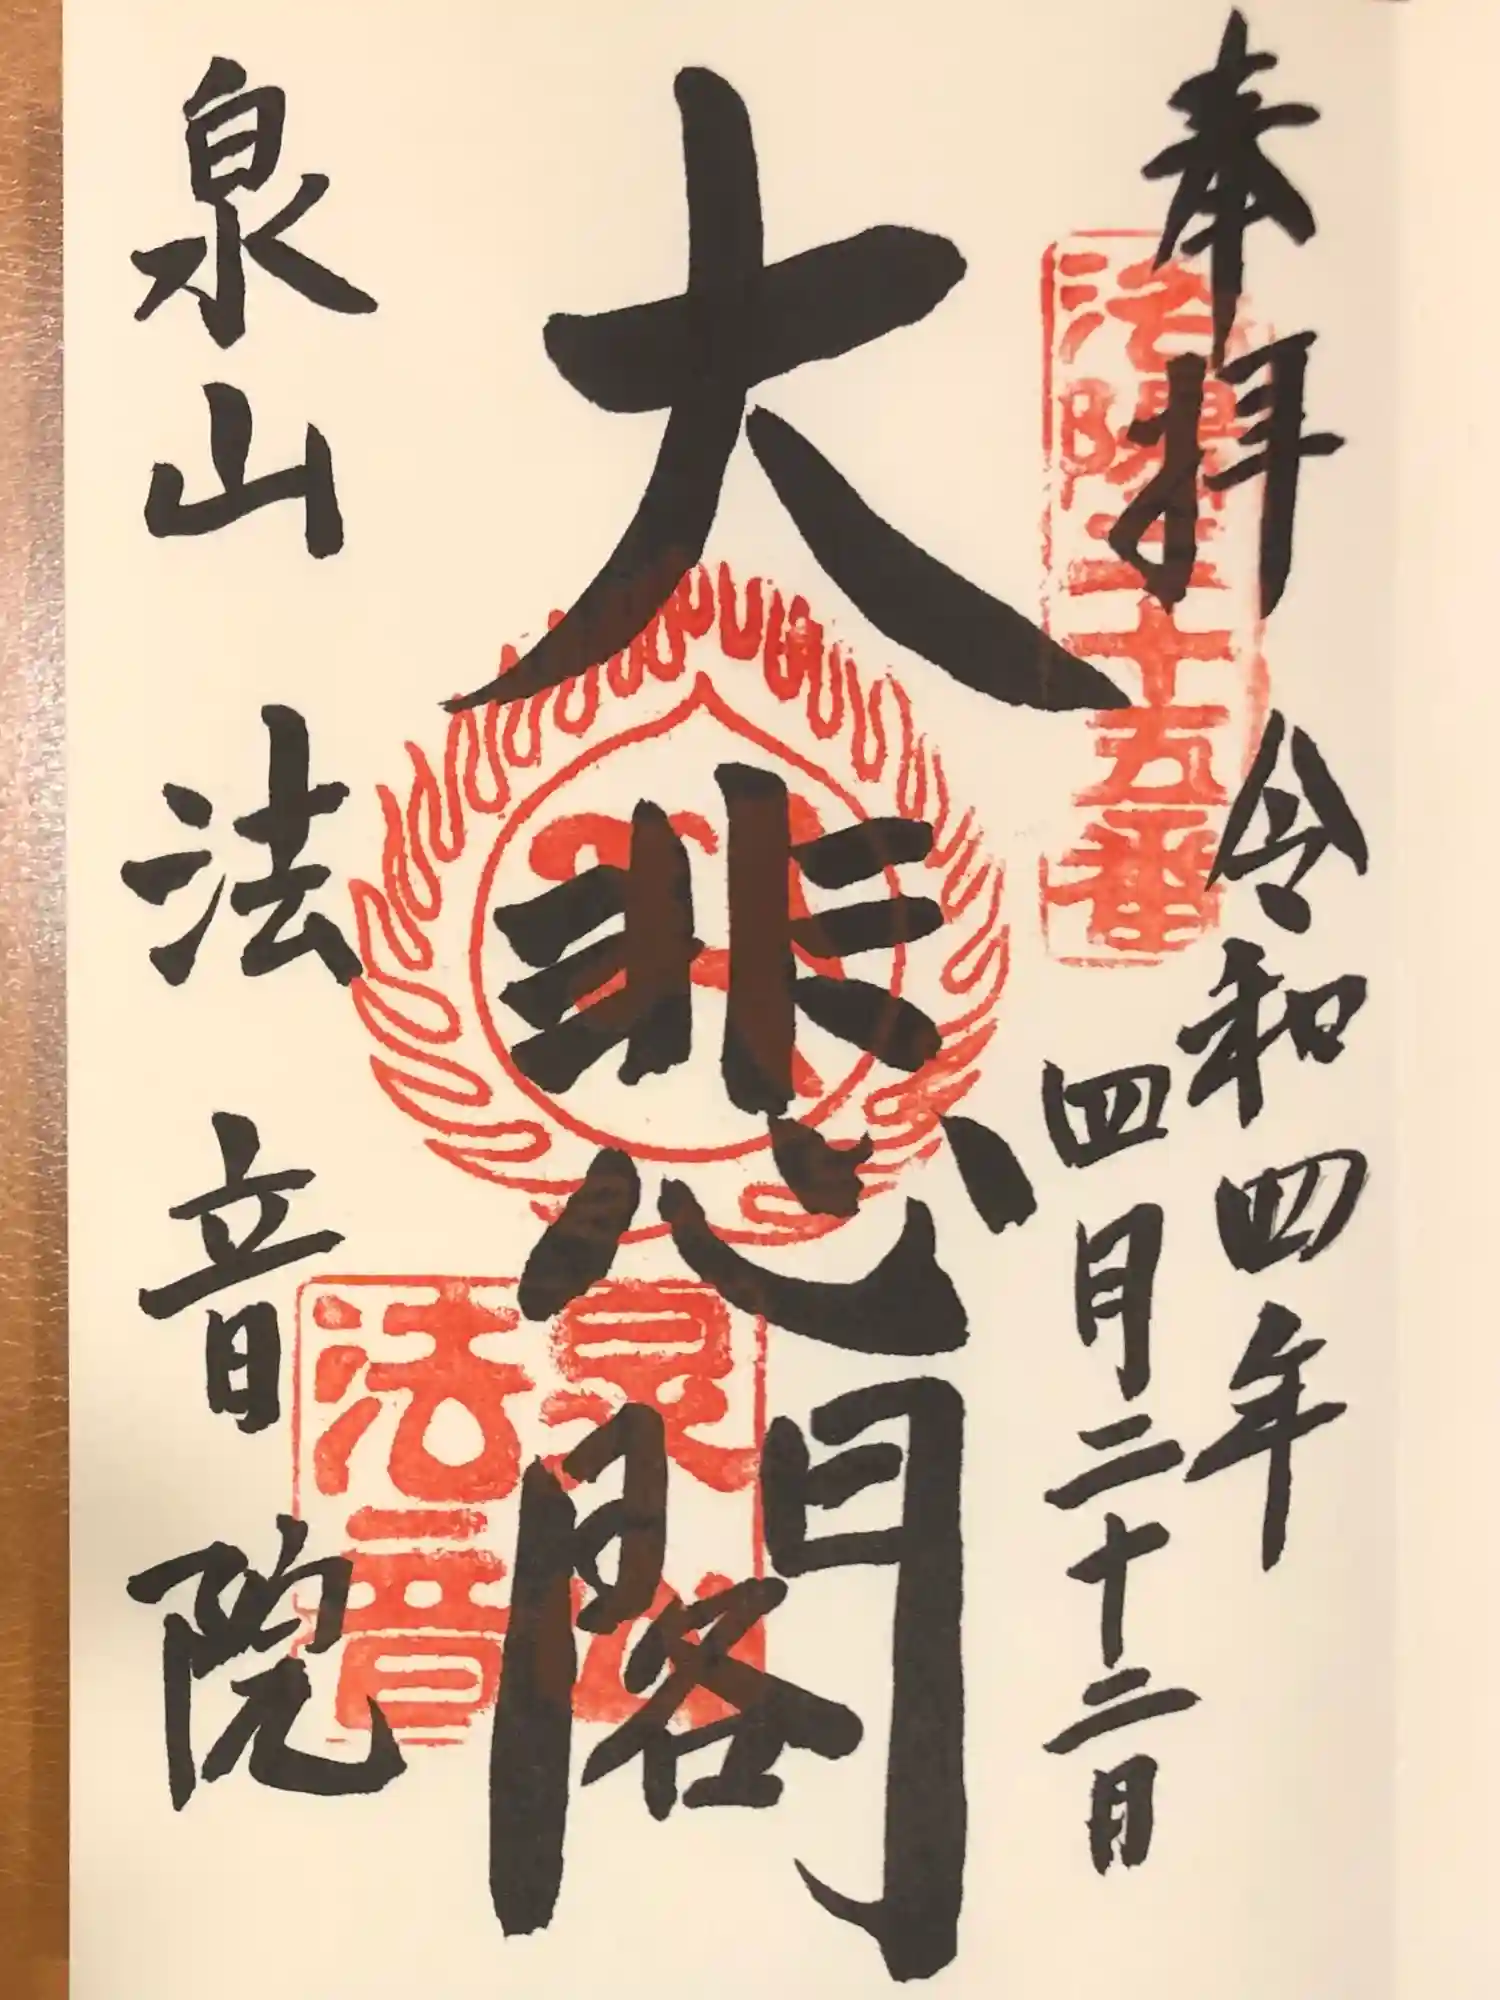 奉拝
令和四年
四月二十二日
法然二十五番
大悲閣
泉山
法音
泉山 法音院